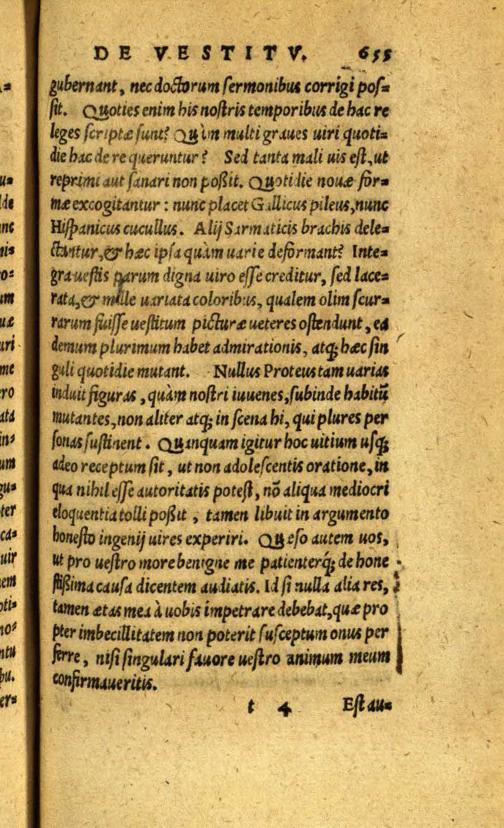 DE VESTITV. 655
gubernant, nec doctorum sermonibus corrigi pos=
sit. Quoties enim his nostris temporibus de hac re
leges scriptæ sunt? Quàm multi graues uiri quoti=
die hac de re queruntur? Sed tanta mali uis est, ut
reprimi aut sanari non poßit. Quotidie nouæ for=
mæ excogitantur: nunc placet Gallicus pileus, nunc
Hispanicus cucullus. Alij Sarmaticis brachis dele=
ctantur, & hæc ipsa quàm uarie deformant? Inte=
gra uestis parum digna uiro esse creditur, sed lace=
rata, & mille uariata coloribus, qualem olim scur=
rarum fuisse uestitum picturæ ueteres ostendunt, ea
demum plurimum habet admirationis, atq; hæc sin
guli quotidie mutant. Nullus Proteus tam uarias
induit figuras, quàm nostri iuuenes, subinde habitũ
mutantes, non aliter atq; in scena hi, qui plures per
sonas sustinent. Quanquam igitur hoc uitium usq;
adeo receptum sit, ut non adolescentis oratione, in
qua nihil esse autoritatis potest, nõ aliqua mediocri
eloquentia tolli poßit, tamen libuit in argumento
honesto ingenij uires experiri. Quæso autem uos,
ut pro uestro more benigne me patienterq; de hone
stißima causa dicentem audiatis. Id si nulla alia res,
tamen ætas mea à uobis impetrare debebat, quæ pro
pter imbecillitatem non poterit susceptum onus per
ferre, nisi singulari fauore uestro animum meum
confirmaueritis.
t 4 Est au=